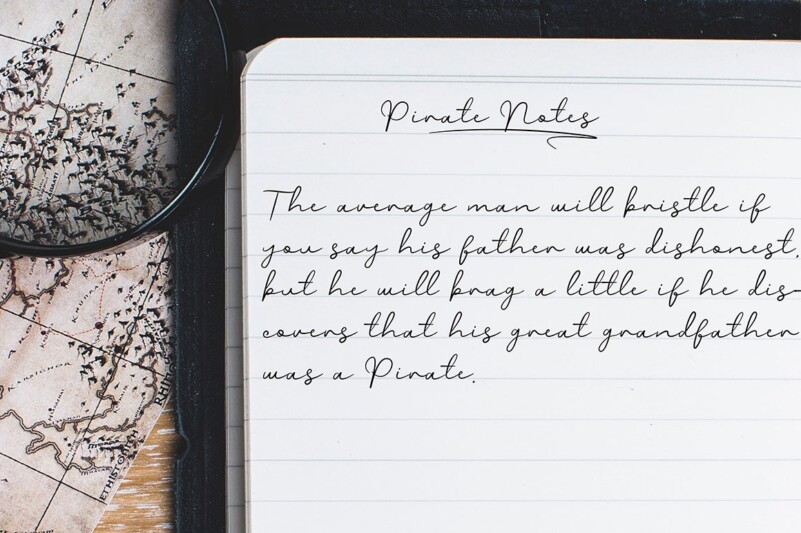 Pirate Notes
The average man will bristle if
you say his father was dishonest,
but he will brag a little if he dis-
covers that his great grandfather
was a Pirate.